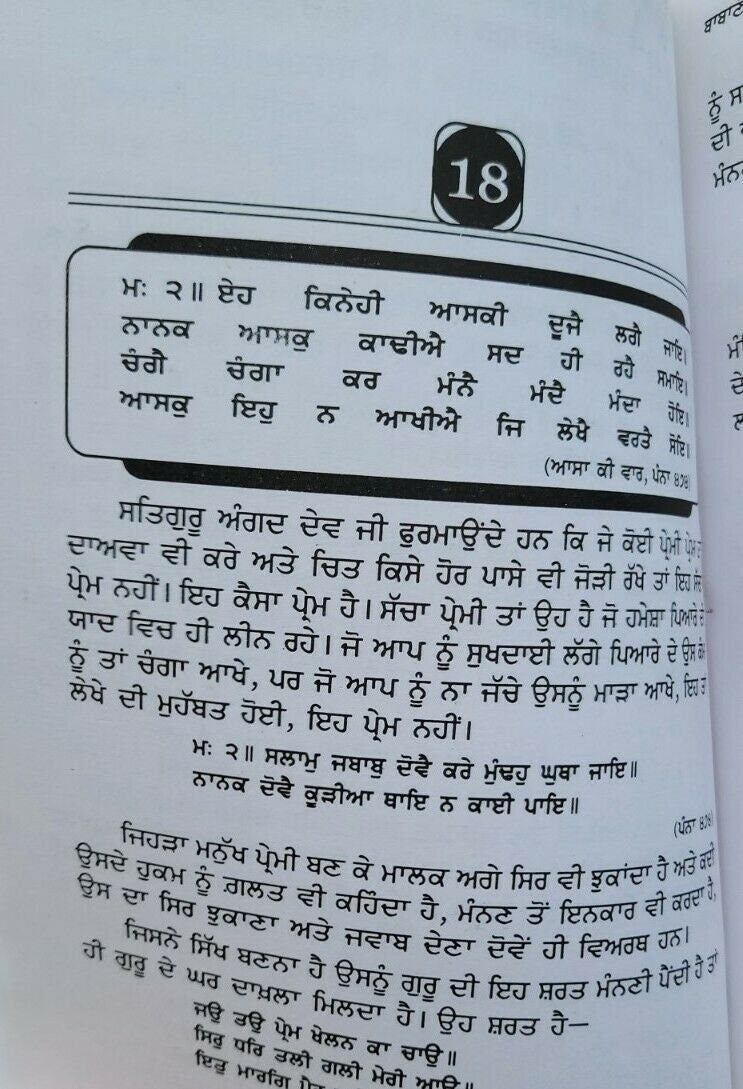 18
ਮਃ ੨॥ ਏਹ ਕਿਨੇਹੀ ਆਸਕੀ ਦੂਜੈ ਲਗੈ ਜਾਇ।
ਨਾਨਕ ਆਸਕੁ ਕਾਢੀਐ ਸਦ ਹੀ ਰਹੈ ਸਮਾਇ।
ਚੰਗੈ ਚੰਗਾ ਕਰ ਮੰਨੈ ਮੰਦੈ ਮੰਦਾ ਹੋਇ॥
ਆਸਕੁ ਇਹੁ ਨ ਆਖੀਐ ਜਿ ਲੇਖੈ ਵਰਤੈ ਸੋਇ॥
(ਆਸਾ ਕੀ ਵਾਰ, ਪੰਨਾ ੪੭੪)
ਸਤਿਗੁਰੂ ਅੰਗਦ ਦੇਵ ਜੀ ਫੁਰਮਾਉਂਦੇ ਹਨ ਕਿ ਜੇ ਕੋਈ ਪ੍ਰੇਮੀ ਪ੍ਰੇਮ
ਦਾਅਵਾ ਵੀ ਕਰੇ ਅਤੇ ਚਿਤ ਕਿਸੇ ਹੋਰ ਪਾਸੇ ਵੀ ਜੋੜੀ ਰੱਖੇ ਤਾਂ ਇਹ
ਪ੍ਰੇਮ ਨਹੀਂ। ਇਹ ਕੈਸਾ ਪ੍ਰੇਮ ਹੈ। ਸੱਚਾ ਪ੍ਰੇਮੀ ਤਾਂ ਉਹ ਹੈ ਜੋ ਹਮੇਸ਼ਾ ਪਿਆਰੇ
ਯਾਦ ਵਿਚ ਹੀ ਲੀਨ ਰਹੇ। ਜੋ ਆਪ ਨੂੰ ਸੁਖਦਾਈ ਲੱਗੇ ਪਿਆਰੇ ਦੇ ਉਸ
ਨੂੰ ਤਾਂ ਚੰਗਾ ਆਖੇ, ਪਰ ਜੋ ਆਪ ਨੂੰ ਨਾ ਜੱਚੇ ਉਸਨੂੰ ਮਾੜਾ ਆਖੇ, ਇਹ ਤਾਂ
ਲੇਖੇ ਦੀ ਮੁਹੱਬਤ ਹੋਈ, ਇਹ ਪ੍ਰੇਮ ਨਹੀਂ।
ਮਃ ੨॥ ਸਲਾਮੁ ਜਬਾਬੁ ਦੋਵੈ ਕਰੇ ਮੁੰਢਹੁ ਘੁਥਾ ਜਾਇ॥
ਨਾਨਕ ਦੋਵੈ ਕੂੜੀਆ ਥਾਇ ਨ ਕਾਈ ਪਾਇ॥
(ਪੰਨਾ ੪੭੪)
ਜਿਹੜਾ ਮਨੁੱਖ ਪ੍ਰੇਮੀ ਬਣ ਕੇ ਮਾਲਕ ਅਗੇ ਸਿਰ ਵੀ ਝੁਕਾਂਦਾ ਹੈ ਅਤੇ ਕਦੀ
ਉਸਦੇ ਹੁਕਮ ਨੂੰ ਗ਼ਲਤ ਵੀ ਕਹਿੰਦਾ ਹੈ, ਮੰਨਣ ਤੋਂ ਇਨਕਾਰ ਵੀ ਕਰਦਾ ਹੈ,
ਉਸ ਦਾ ਸਿਰ ਝੁਕਾਣਾ ਅਤੇ ਜਵਾਬ ਦੇਣਾ ਦੋਵੇਂ ਹੀ ਵਿਅਰਥ ਹਨ।
ਜਿਸਨੇ ਸਿੱਖ ਬਣਨਾ ਹੈ ਉਸਨੂੰ ਗੁਰੂ ਦੀ ਇਹ ਸ਼ਰਤ ਮੰਨਣੀ ਪੈਂਦੀ ਹੈ ਤਾਂ
ਹੀ ਗੁਰੂ ਦੇ ਘਰ ਦਾਖ਼ਲਾ ਮਿਲਦਾ ਹੈ। ਉਹ ਸ਼ਰਤ ਹੈ—
ਜਉ ਤਉ ਪ੍ਰੇਮ ਖੇਲਨ ਕਾ ਚਾਉ॥
ਸਿਰੁ ਧਰਿ ਤਲੀ ਗਲੀ ਮੇਰੀ ਆਉ॥
ਇਤੁ ਮਾਰਗਿ
ਨੂੰ
ਦੀ